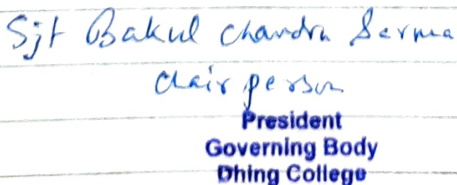 Sjt Bakul Chandra Sarma
Chairperson
President
Governing Body
Dhing College